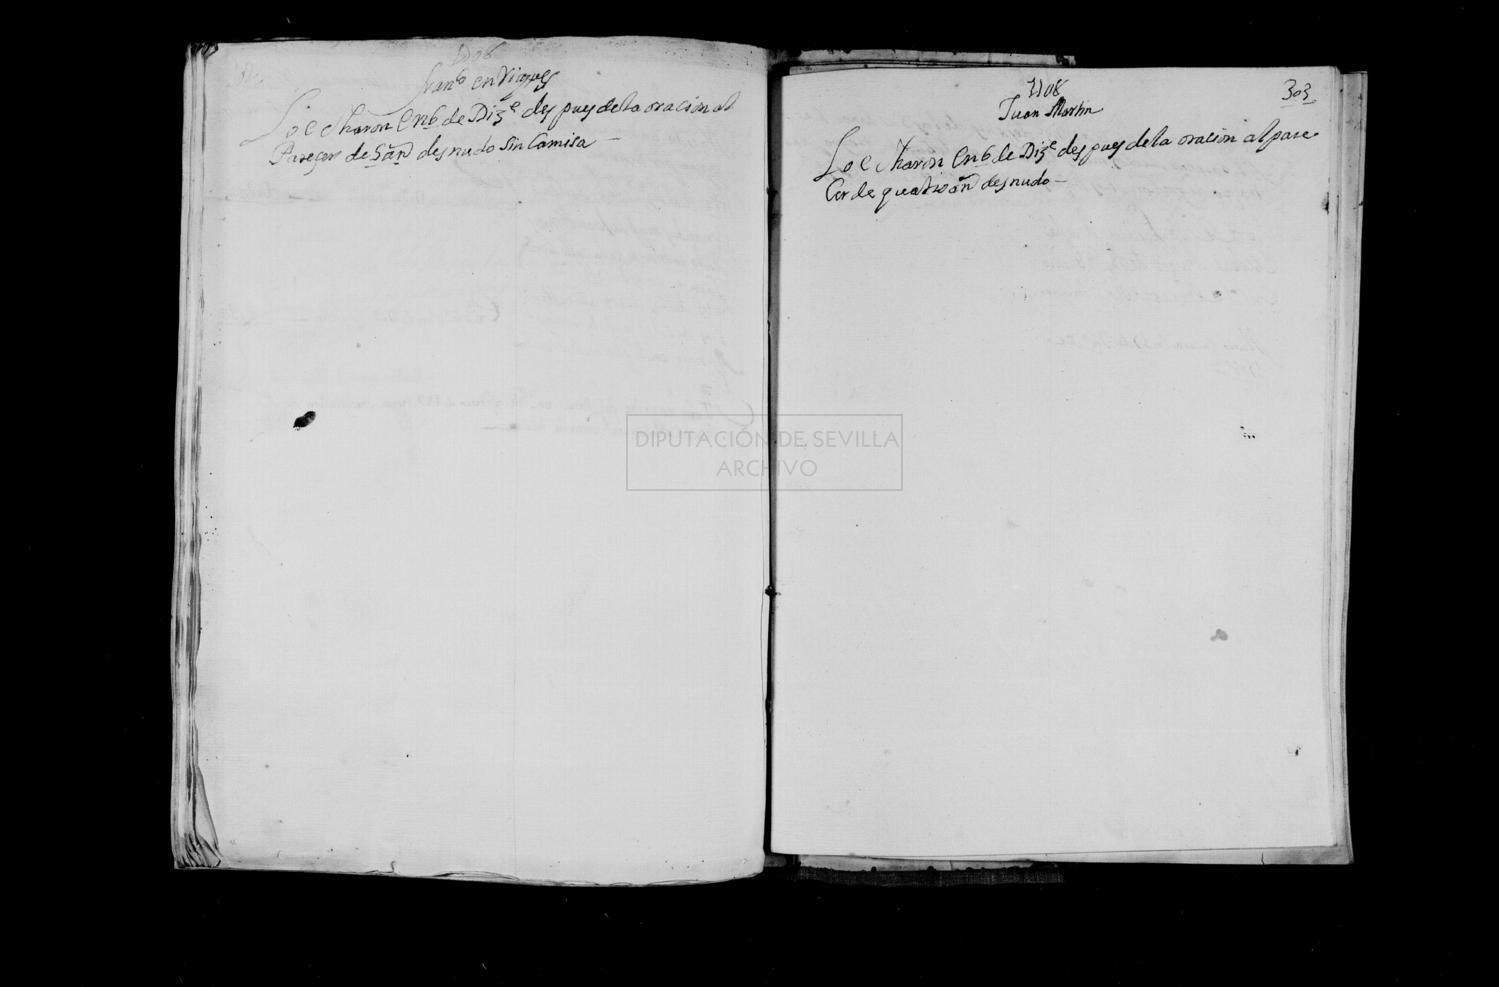 1708
Franco enRiques
Lo e charon En 6 de Dize despues de la oracion al
Pareçer de 5 añ desnudo Sin Camisa
1708
303
Juan Martin
Lo e charon En 6 de Dize despues de la oracion al pare
Cer de quatro añ desnudo
DIPUTACIÓN DE SEVILLA
ARCHIVO